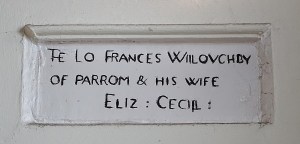 TE LO FRANCES WILLOUCHBY
OF PARROM & HIS WIFE
ELIZ : CECILL :